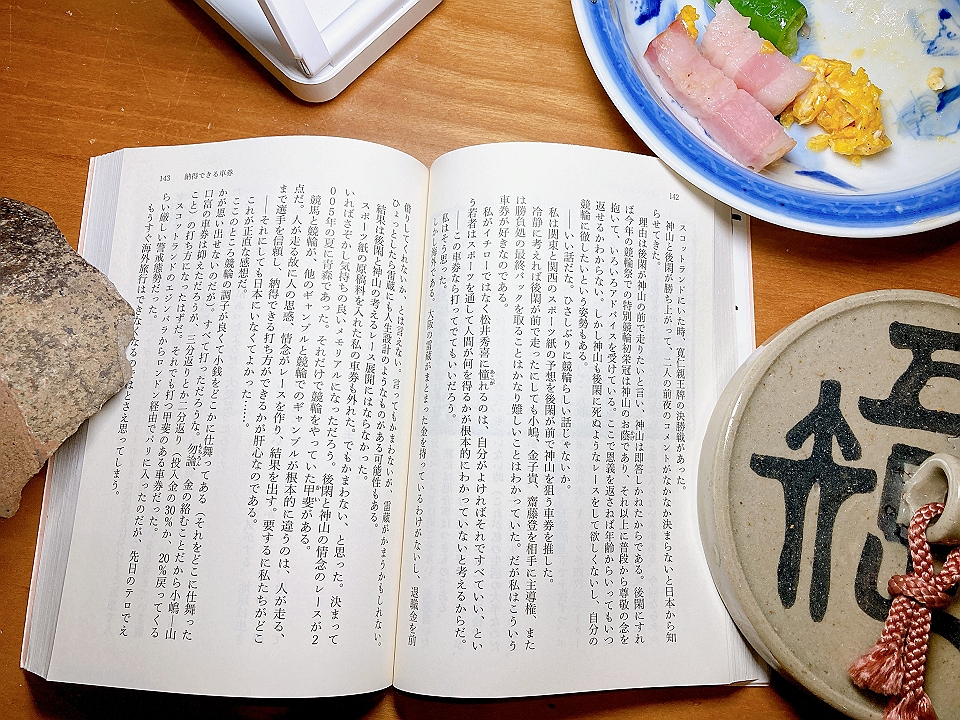 142
スコットランドにいた時、寛仁親王牌の決勝戦があった。
神山と後閑が勝ち上がって、二人の前夜のコメントがなかなか決まらないと日本から知
らせてきた。
理由は後閑が神山の前で走りたいと言い、神山は即答しかねたからである。後閑にすれ
ば今年の競輪祭での特別競輪初栄冠は神山のお蔭であり、それ以上に普段から尊敬の念を
抱いて、いろいろアドバイスを受けている。ここで恩義を返さねば年齢からいってもいつ
返せるかわからない。しかし神山も後閑に死ぬようなレースをして欲しくないし、自分の
競輪に徹したいという姿勢もある。
――いい話だな。ひさしぶりに競輪らしい話じゃないか。
私は関東と関西のスポーツ紙の予想を後閑が前で神山を狙う車券を推した。
冷静に考えれば後閑が前で走ったにしても小嶋、金子貴、齋藤登を相手に主導権、また
は勝負処の最終バックを取ることはかなり難しいことはわかっていた。だが私はこういう
車券が好きなのである。
私がイチローではなく松井秀喜に憧れるのは、自分がよければそれですべていい、とい
う若者はスポーツを通して人間が何を得るかが根本的にわかっていないと考えるからだ。
――この車券なら打ってでてもいいだろう。
私はそう思った。
しかし海外である。大阪の雷蔵がまとまった金を持っているわけがないし、退職金を前
143 納得できる車券
借りしてくれないか、とは言えない。言ってもかまわないが、雷蔵がかまうかもしれない。
ひょっとしたら雷蔵にも人生設計のようなものがある可能性もある。
結果は後閑と神山の考えるレース展開にはならなかった。
スポーツ紙の原稿料を入れた私の車券も外れた。でもかまわない、と思った。決まって
いればさぞかし気持ちの良いメモリアルになっただろう。後閑と神山の情念のレースが2
005年の夏に青森であった。それだけで競輪をやっていた甲斐がある。
競馬と競輪が、他のギャンブルと競輪でのギャンブルが根本的に違うのは、人が走る、
点だ。人が走る故に人の思惑、情念がレースを作り、結果を出す。要するに私たちがどこ
まで選手を信頼し、納得できる打ち方ができるかが肝心なのである。
――それにしても日本にいなくてよかった……。
これが正直な感想だ。
ここのところ競輪の調子が良くて小銭をどこかに仕舞ってある（それをどこに仕舞った
かが思い出せないのだが）。すべて打っただろうな。勿論、金の絡むことだから小嶋―山
口富の車券は抑えただろうが、三分返りとか二分返り（投入金の30％か、20％戻ってくる
こと）の打ち方になったはずだ。それでも打つ甲斐のある車券だった。
スコットランドのエジンバラからロンドン経由でパリに入ったのだが、先日のテロでえ
らい厳しい警戒態勢だった。
もうすぐ海外旅行はできなくなるのではとさえ思ってしまう。
福